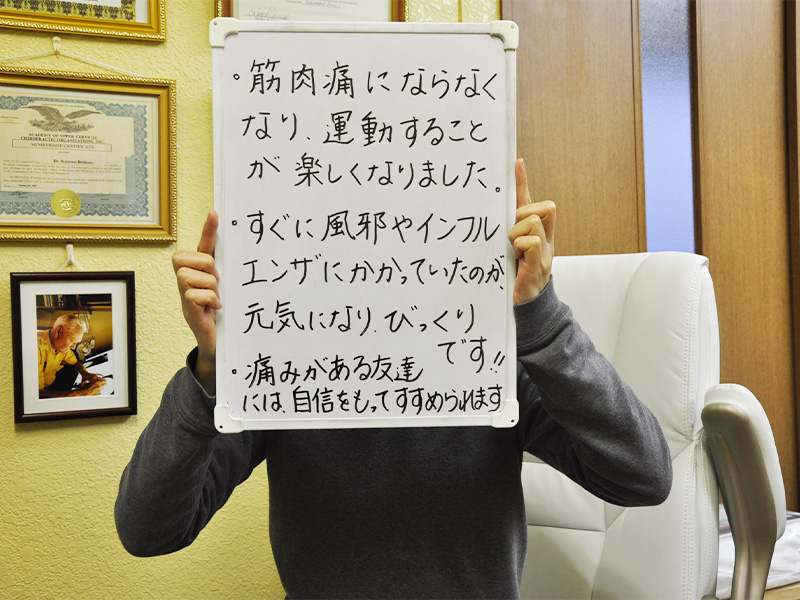 ACADEMY OF UPPER CERVICAL
CHIROPRACTIC ORGANIZATIONS, INC.
MEMBERSHIP CERTIFICATE
・筋肉痛にならなく
なり、運動すること
が楽しくなりました。
・すぐに風邪やインフル
エンザにかかっていたのが、
元気になり、びっくり
です!!
・痛みがある友達
には、自信をもってすすめられます